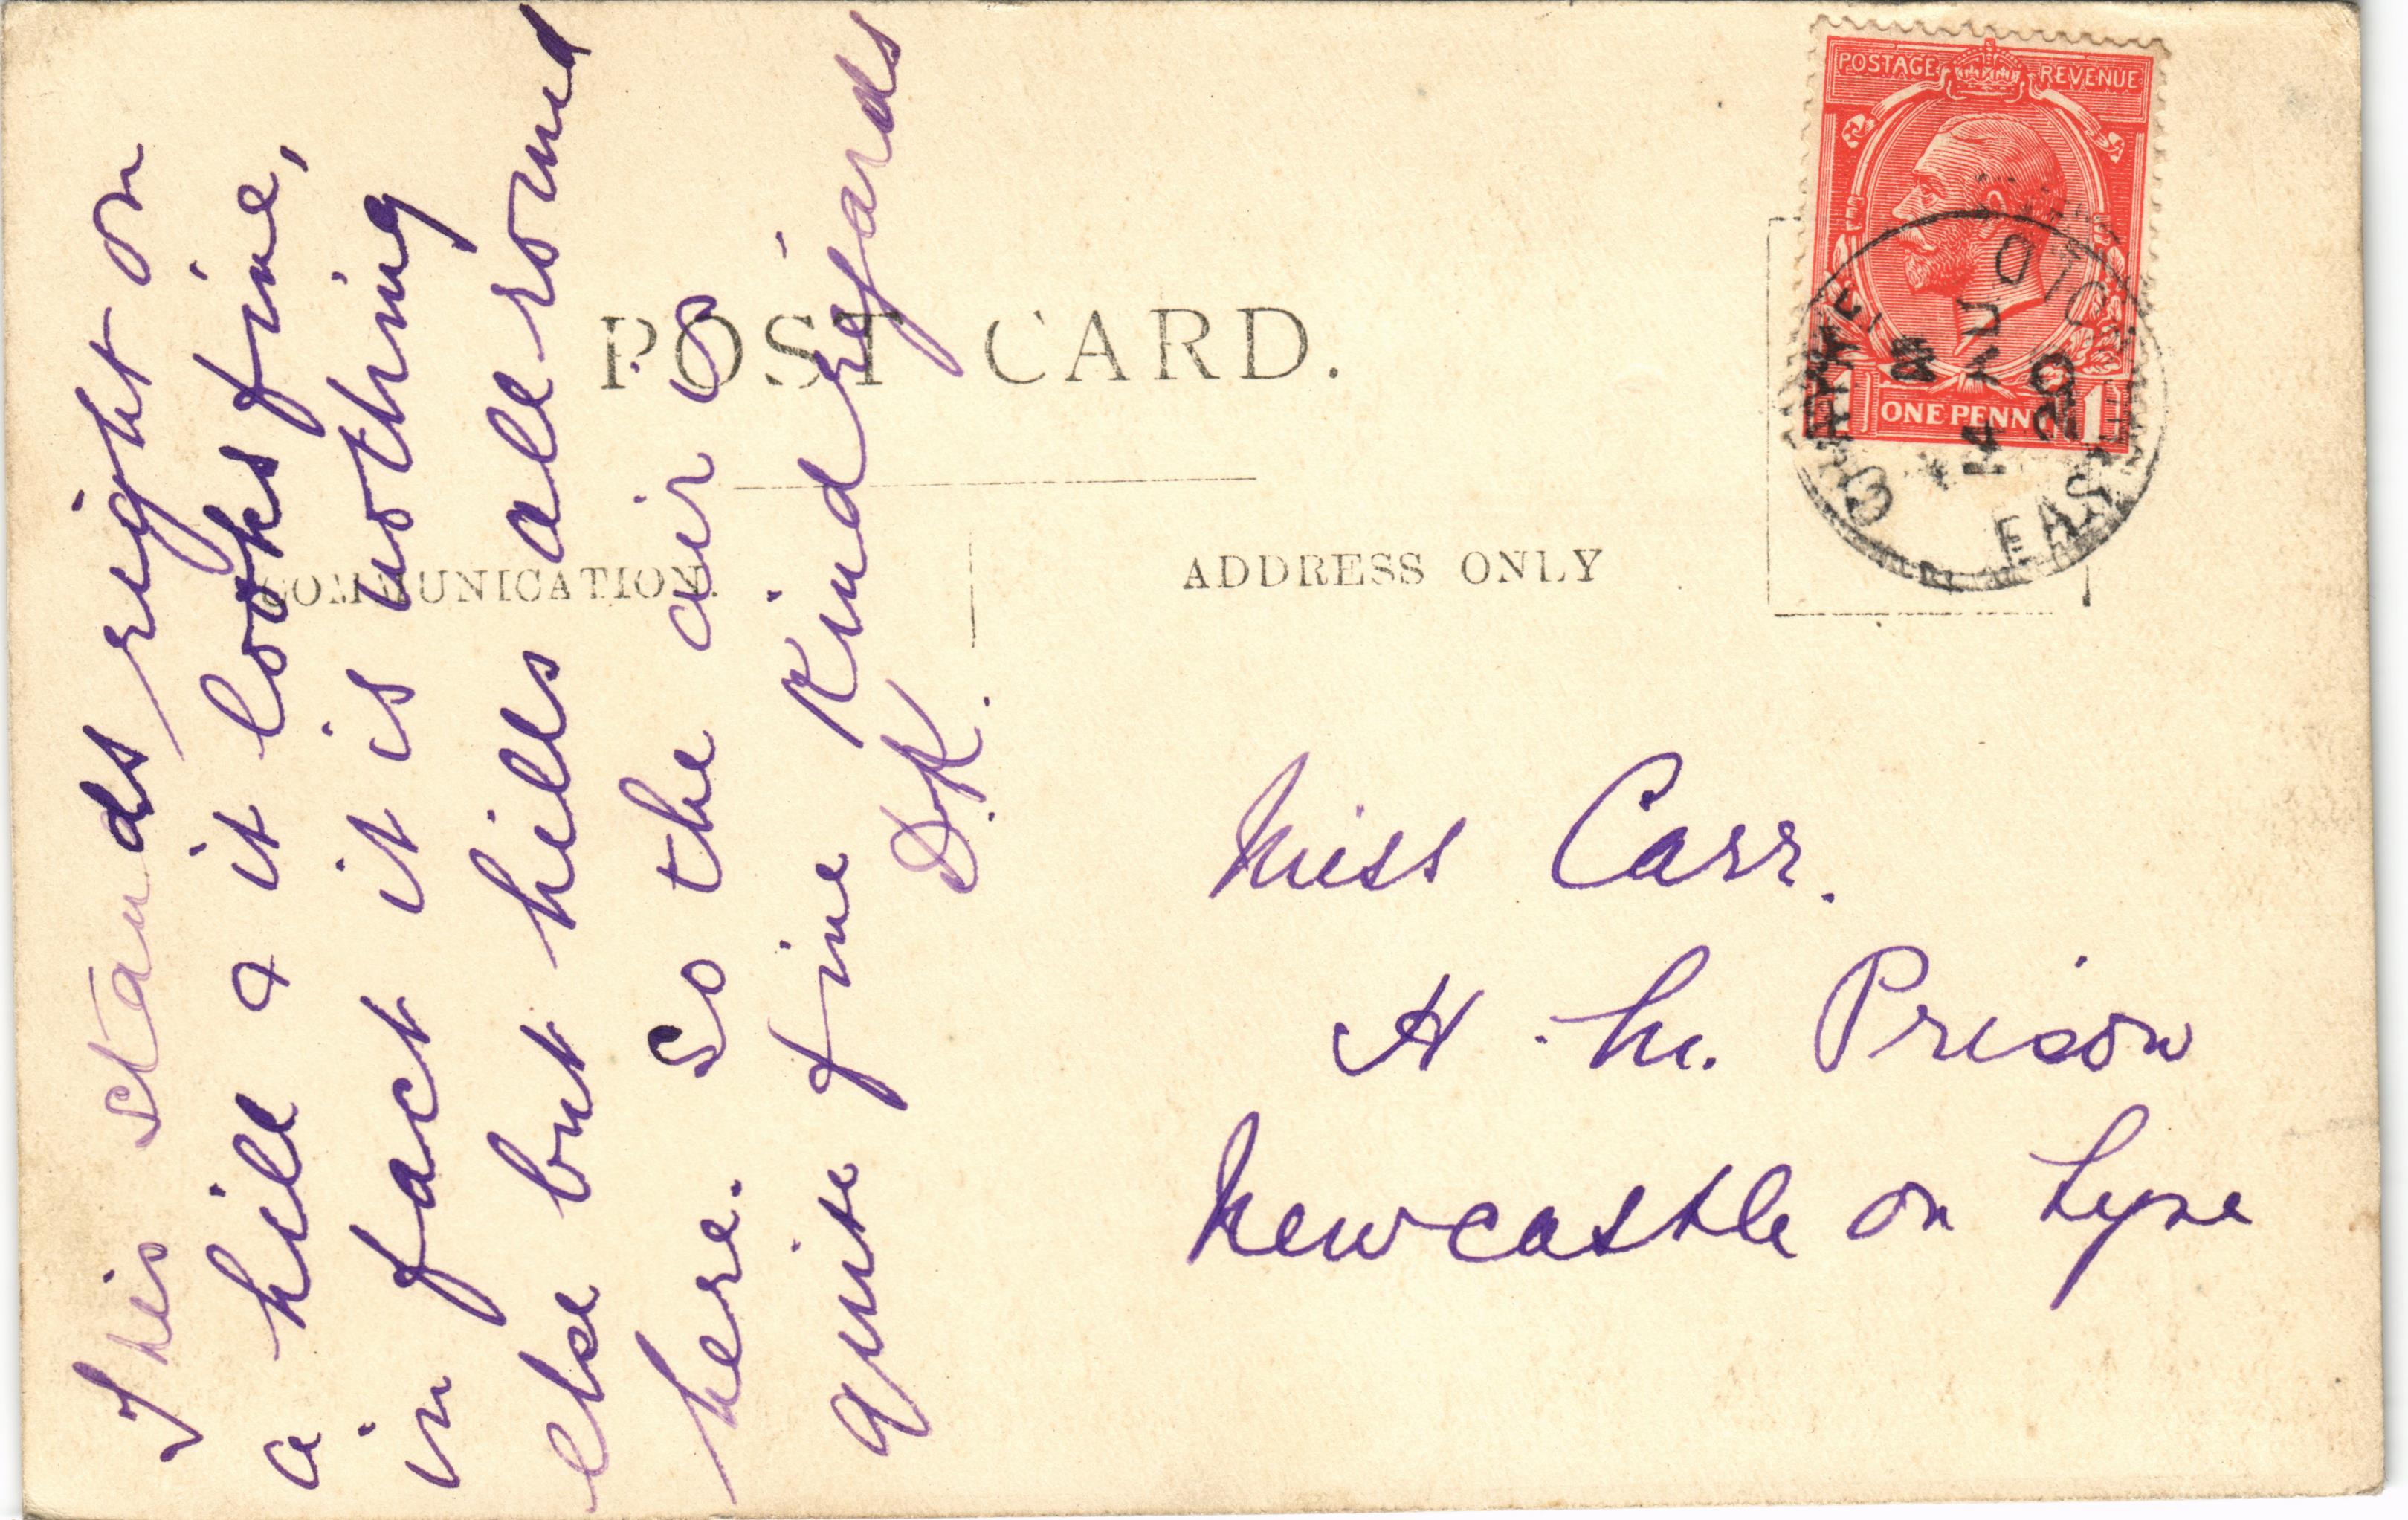 This stands right on
a hill & it looks fine,
in fact it is nothing
else but hills all round
here. So the air is
quite fine Kind regards
D.K.
POST CARD.
COMMUNICATION.
ADDRESS ONLY
POSTAGE REVENUE
ONE PENNY
1 1
AU
20
EAST
Miss Carr.
H. M. Prison
Newcastle on Tyne